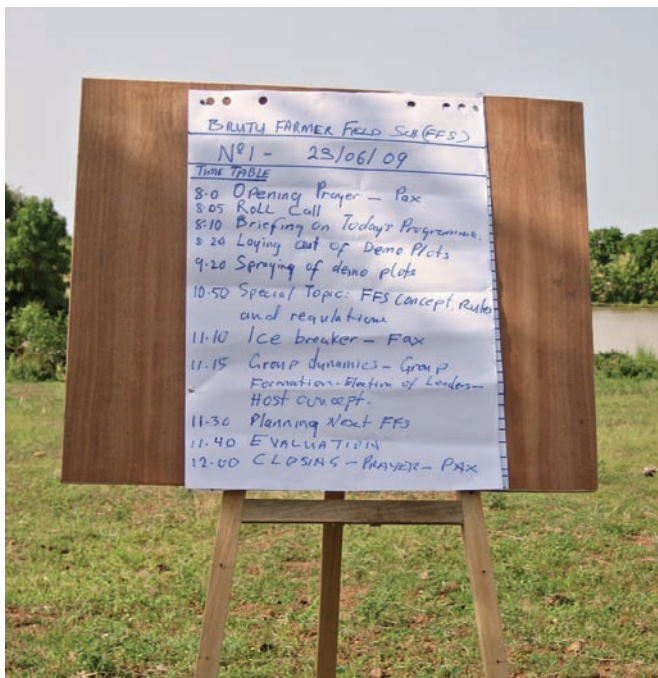 BRUTU FARMER FIELD SCH (FFS)
Nº1 - 23/06/09
TIME TABLE
8.0 Opening Prayer - Pax
8.05 ROLL CALL
8.10 Briefing on Today's Programme.
8.20 Laying out of Demo Plots
9.20 Spraying of demo plots
10.50 Special Topic: FFS Concept, Rules
and regulations
11.10 Ice breaker - Pax
11.15 Group dynamics - Group
Formation - Election of Leaders -
Host concept.
11.30 Planning Next FFS
11.40 EVALUATION
12.00 CLOSING - PRAYER - PAX